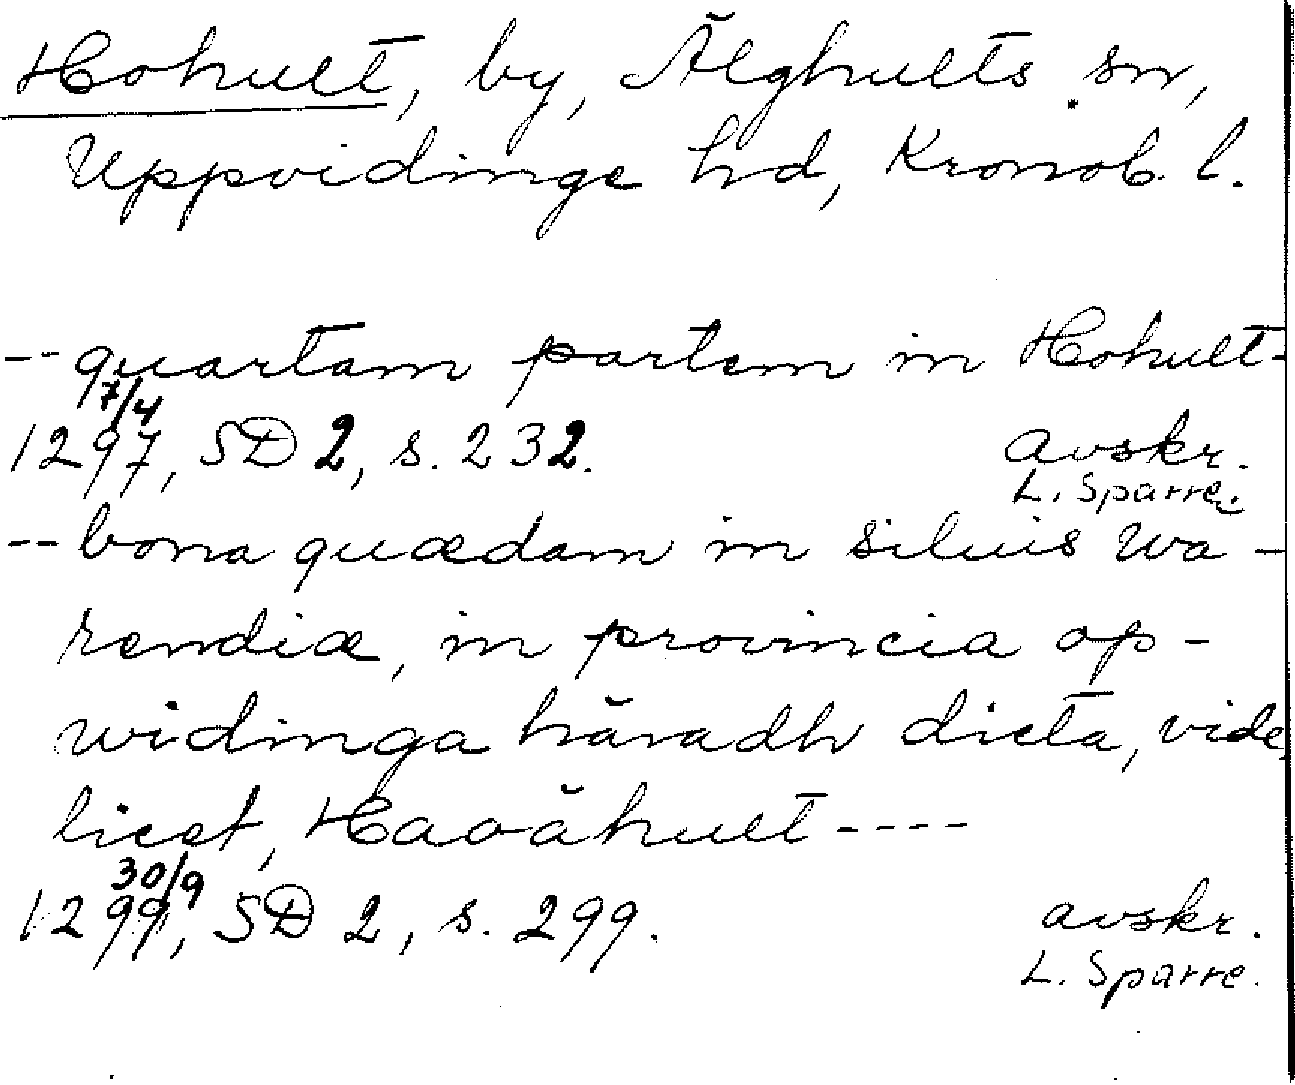 Hohult, by, Älghults sn,
Uppvidinge hd, Kronob. l.
-- quartam partem in Hohult-
7/4
1297, SD 2, s. 232.
avskr.
L. Sparre.
-- bona quædam in siluis Wa-
rendiæ, in provincia op-
widinga häradh dicta, vide
licet, Haoähult ----
30/9
1299, SD 2, s. 299.
avskr.
L. Sparre.